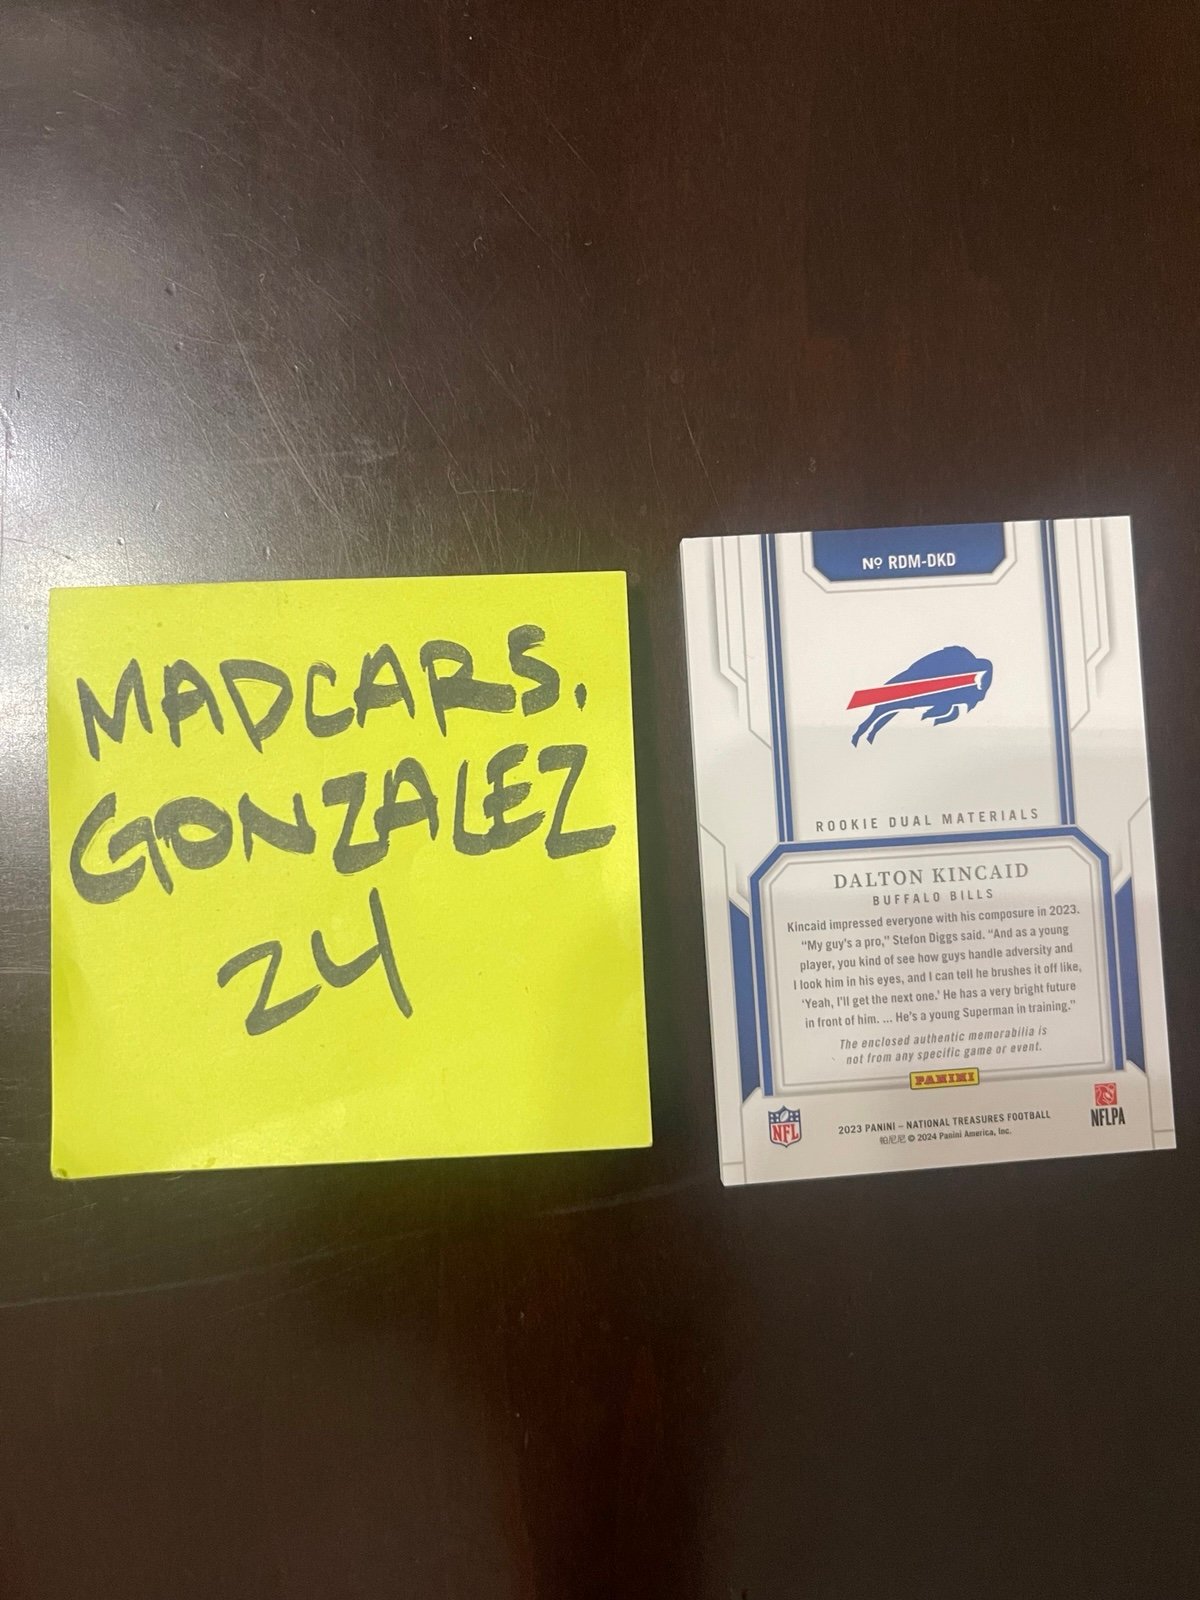 MADCARS.
GONZALEZ
24
Nº RDM-DKD
ROOKIE DUAL MATERIALS
DALTON KINCAID
BUFFALO BILLS
Kincaid impressed everyone with his composure in 2023.
“My guy's a pro,” Stefon Diggs said. “And as a young
player, you kind of see how guys handle adversity and
I look him in his eyes, and I can tell he brushes it off like,
‘Yeah, I'll get the next one.’ He has a very bright future
in front of him. ... He's a young Superman in training.”
The enclosed authentic memorabilia is
not from any specific game or event.
PANINI
NFL
2023 PANINI – NATIONAL TREASURES FOOTBALL
帕尼尼 © 2024 Panini America, Inc.
NFLPA